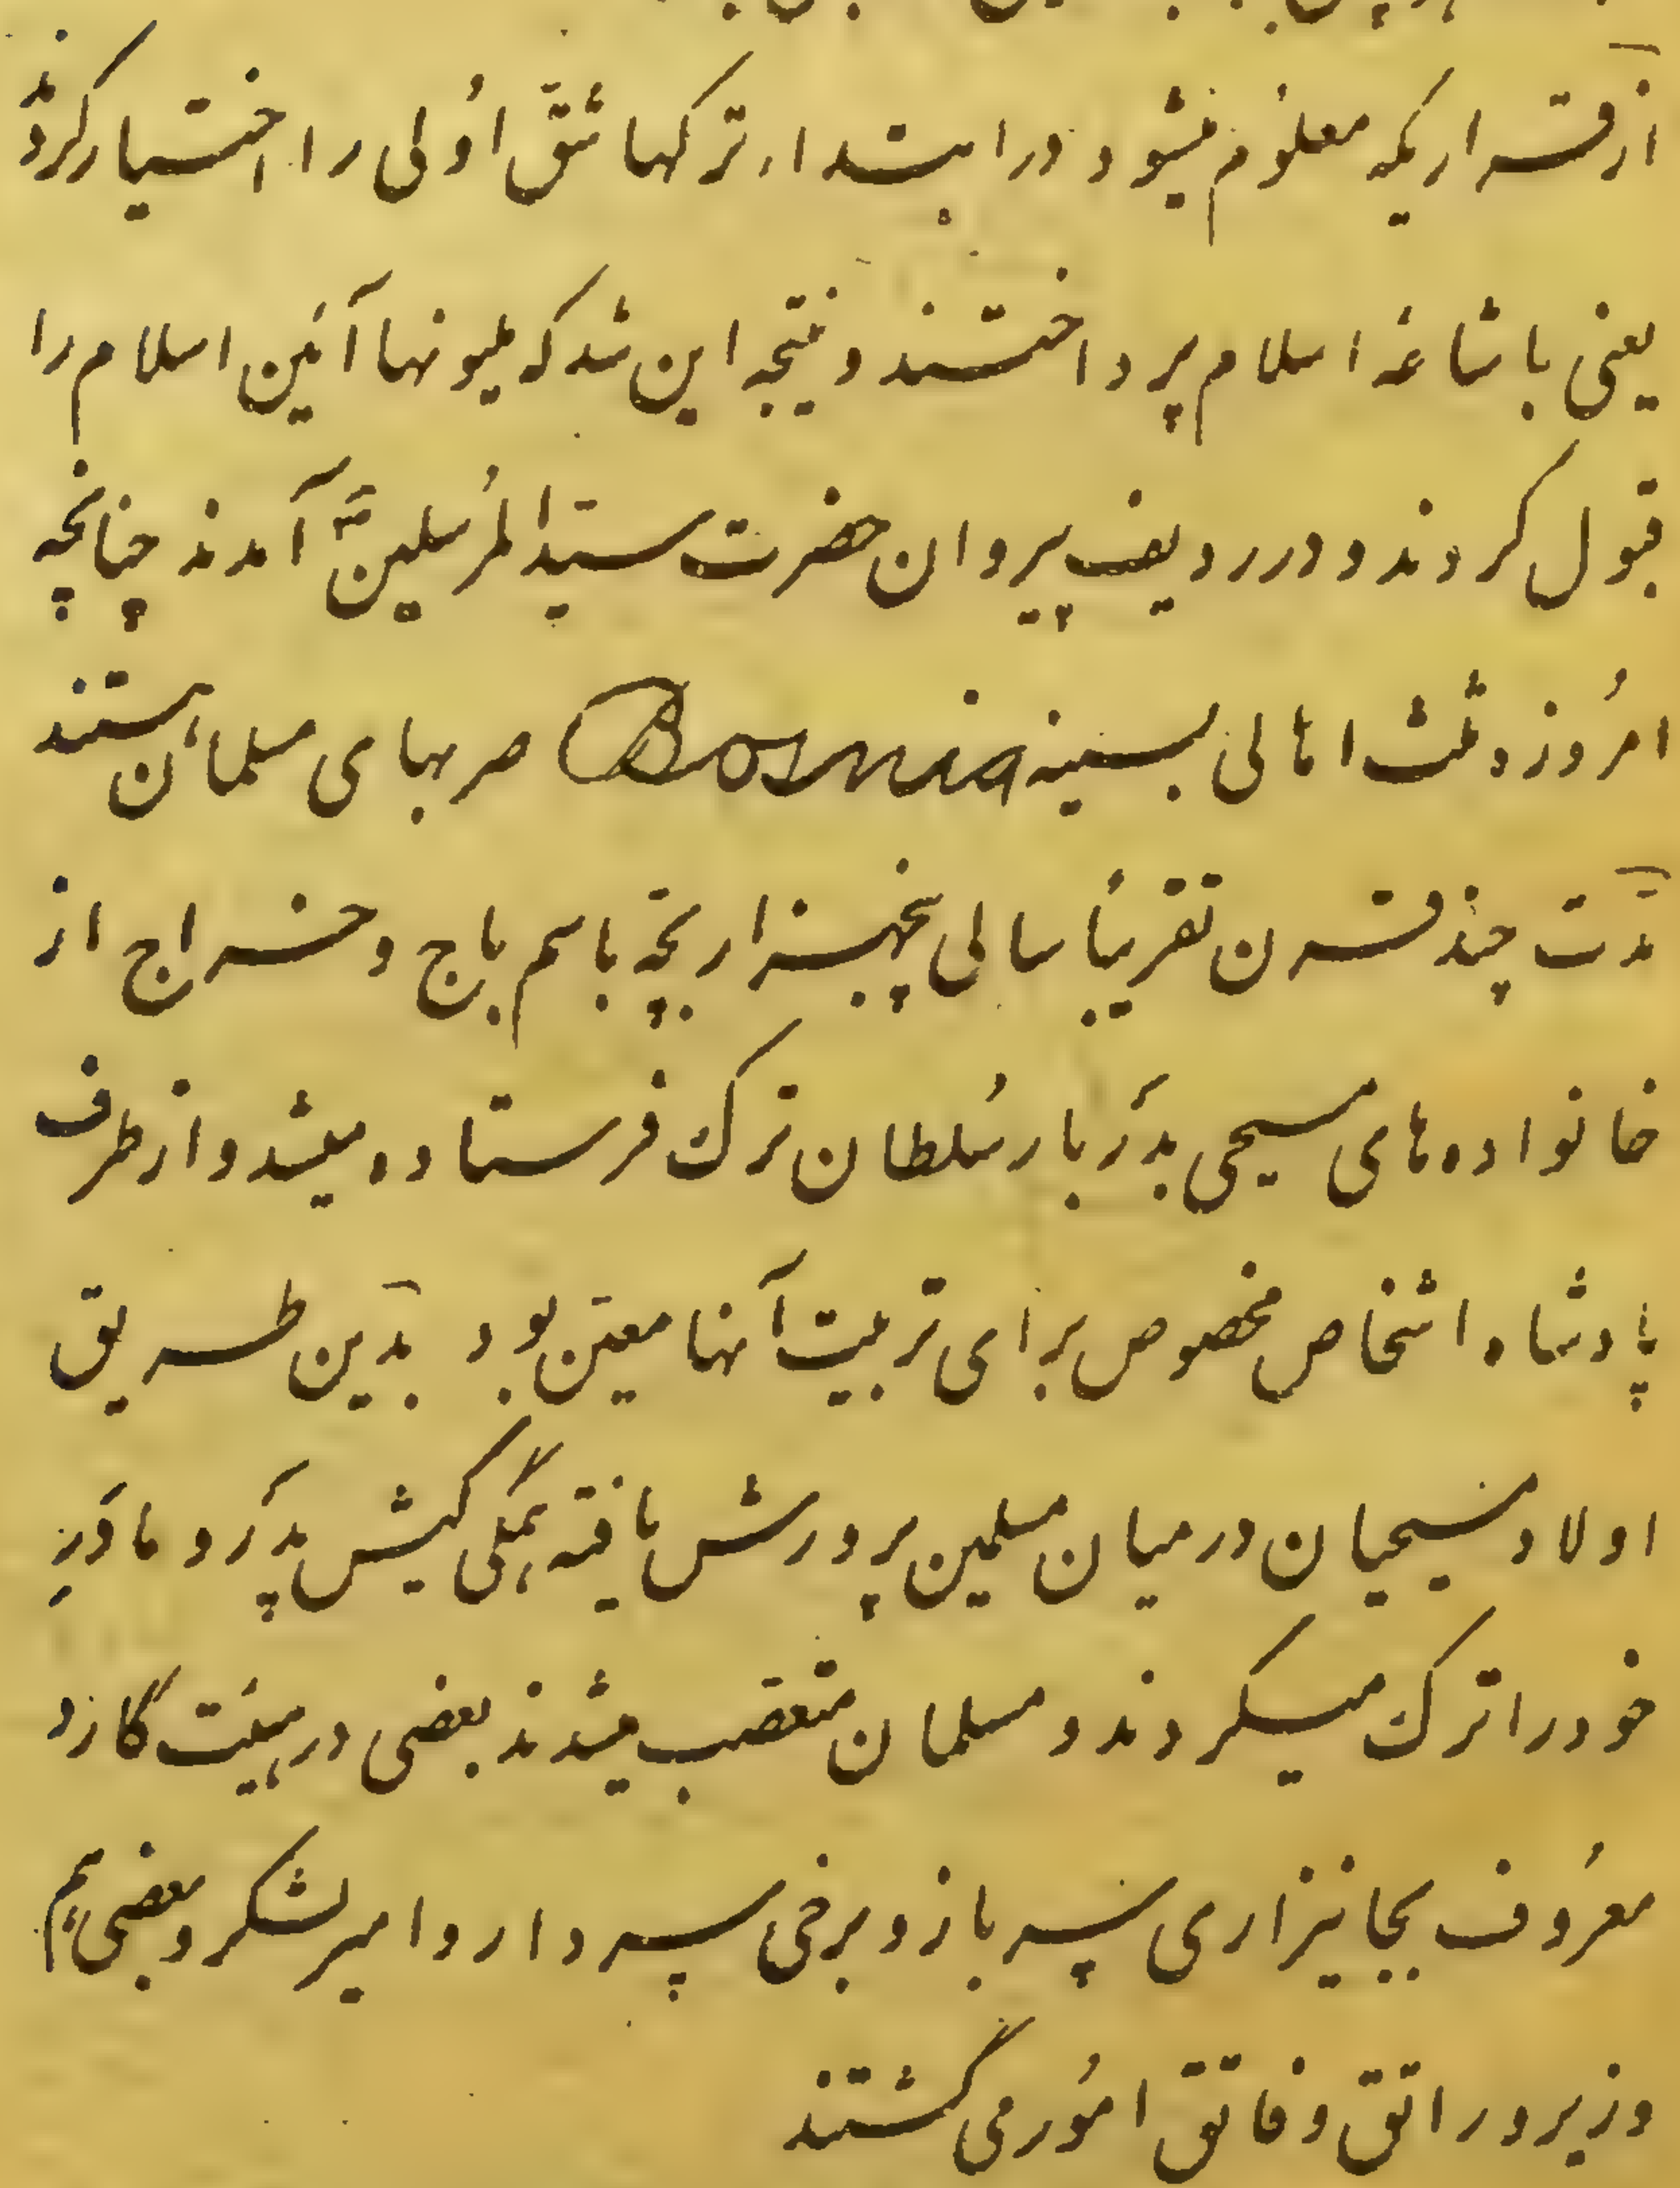 از قرار یکه معلوم میشود در ابتداء ترکها شقّ اُولی را اختیار کردند
یعنی باشاعهٔ اسلام پرداختند و نتیجه این شد که ملیونها آئین اسلام را
قبول کردند و در ردیف پیروان حضرت سیّد المُرسلین آمدند چنانچه
امرُوز دو ثلث اهالی بسینه Bosnia صربهای مسلمان هستند
مدّت چند قرن تقریباً سالی پنجهزار بچّه باسم باج و خراج از
خانواده‌های مسیحی بدَربار سُلطان ترک فرستاده میشد و از طرف
پادشاه اشخاص مخصوص برای تربیت آنها معیّن بود بدین طریق
اولاد مسیحیان در میان مسلمین پرورش یافته همگی کیش پدَر و مادَرِ
خود را ترک میکردند و مسلمان متعصّب میشدند بعضی در هیئت گارد
معرُوف بجانیزاری سرباز و برخی سپه‌دار و امیر لشکر و بعضی هم
وزیر و راتق و فاتق امُور می گشتند